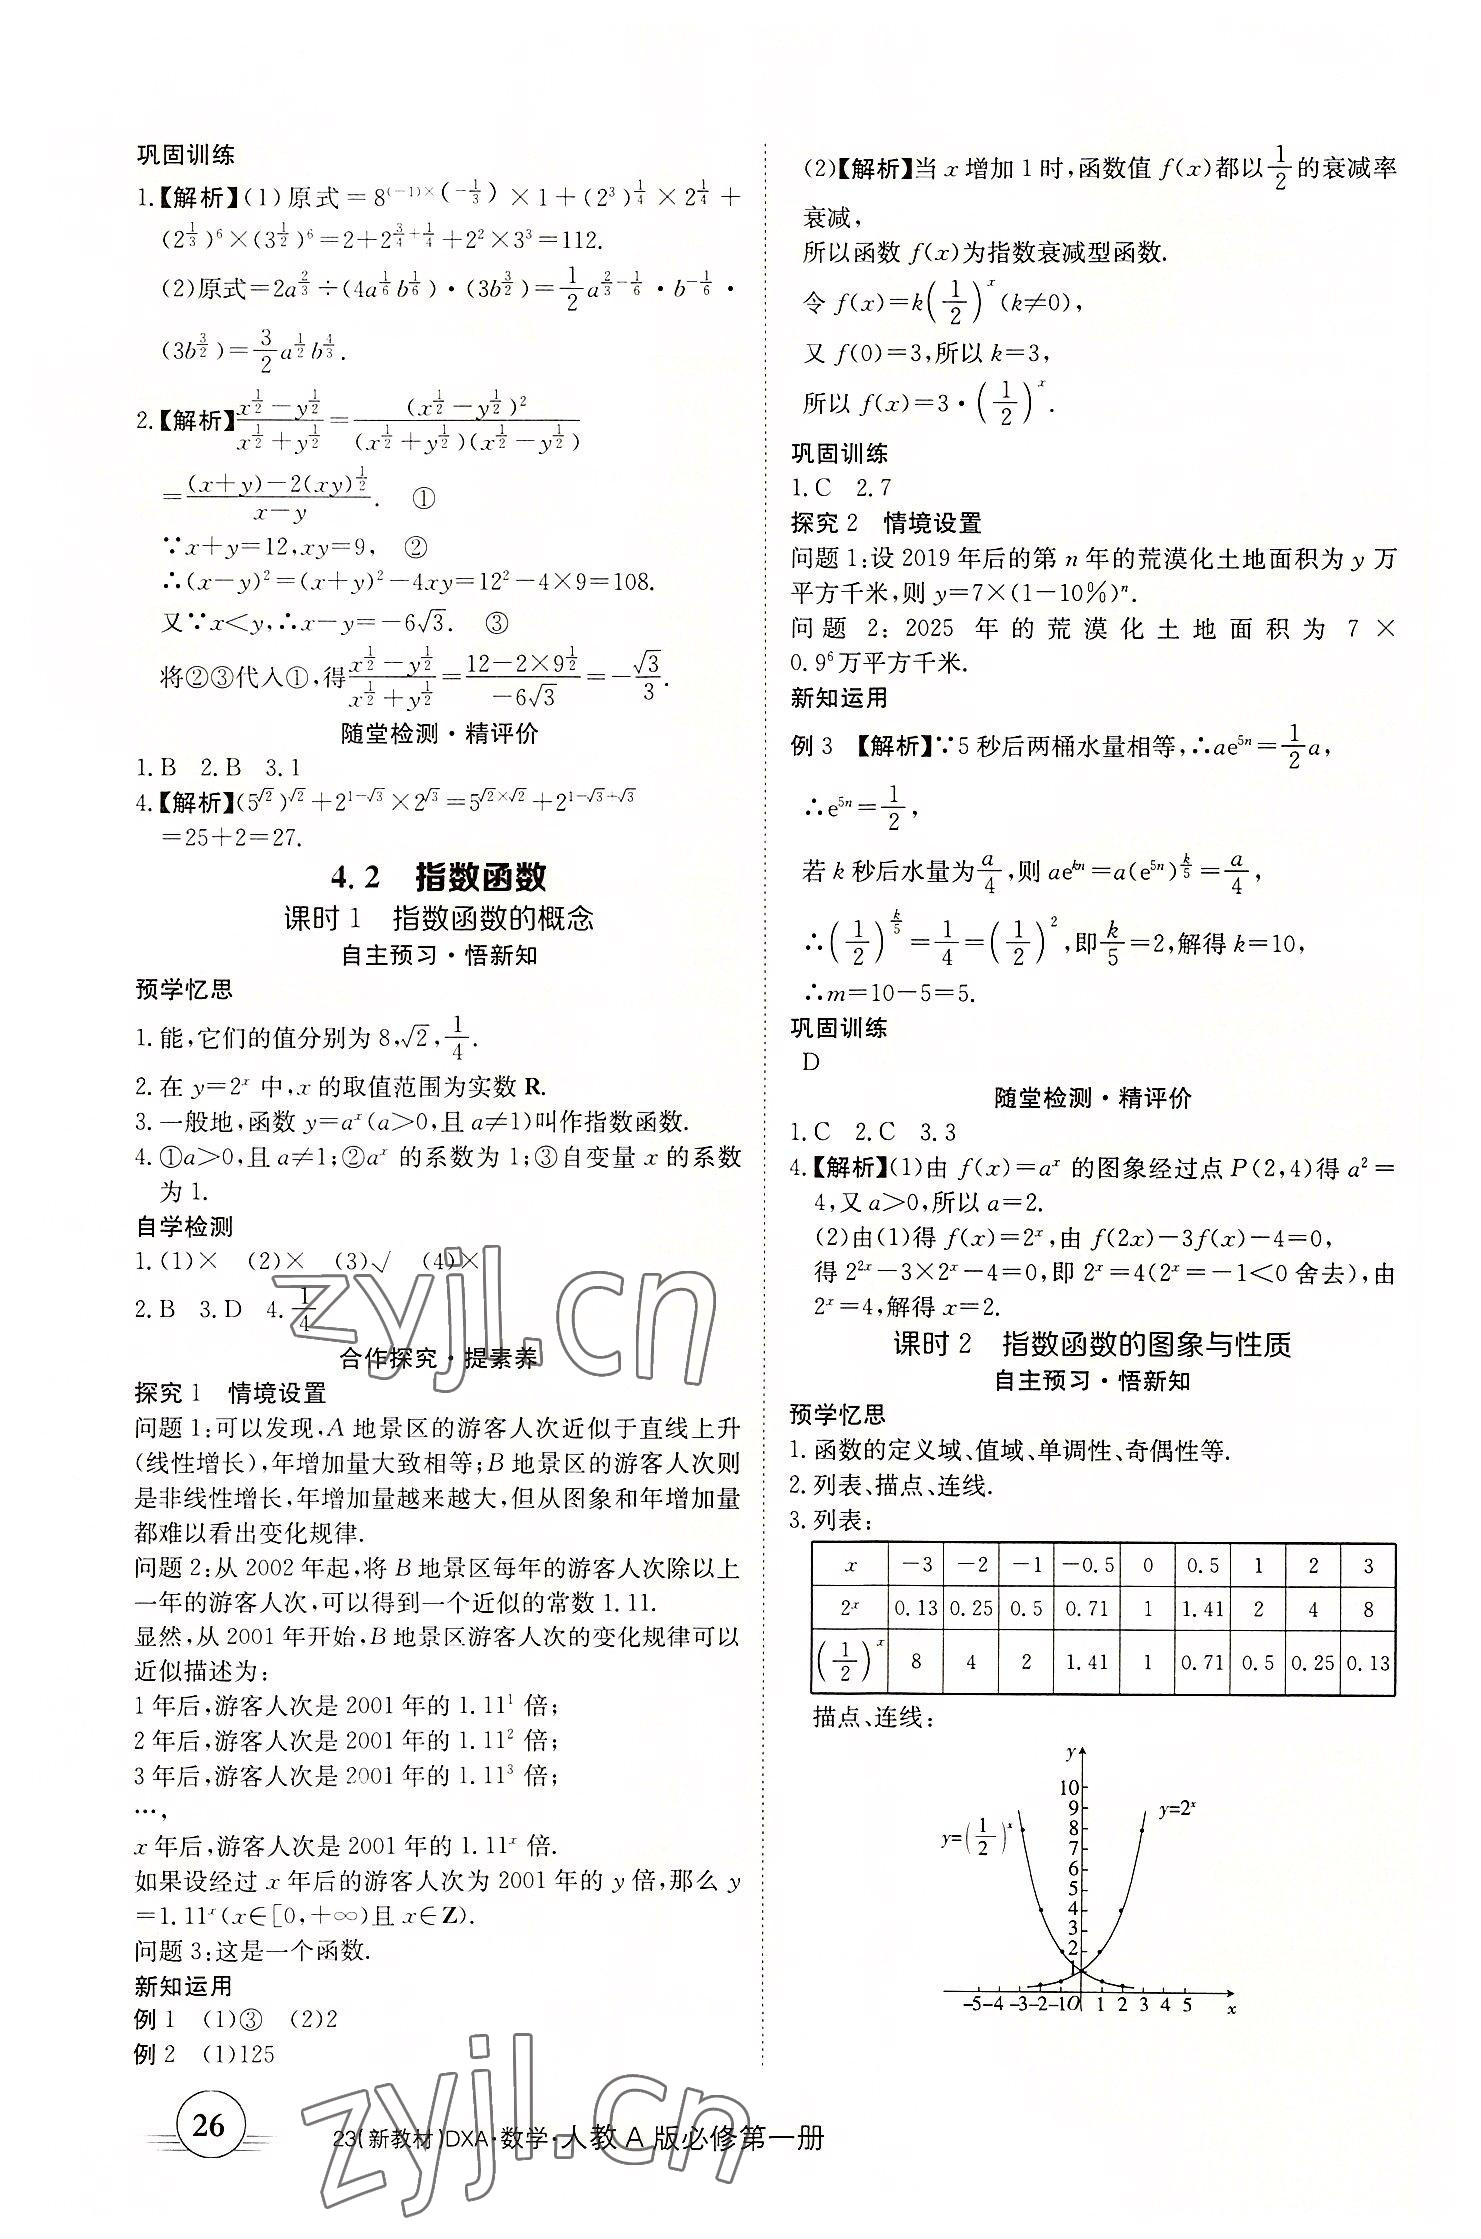 巩固训练
1.【解析】(1)原式=8^{(-1)×(-1/3)}×1+(2³)^{1/4}×2^{1/4}+
(2^{1/3})⁶×(3^{1/2})⁶=2+2^{3/4+1/4}+2²×3³=112.
(2)原式=2a^{2/3}÷(4a^{1/6}b^{1/6})·(3b^{3/2})=1/2a^{2/3-1/6}·b^{-1/6}·
(3b^{3/2})=3/2a^{1/2}b^{4/3}.
2.【解析】(x^{1/2}-y^{1/2})/(x^{1/2}+y^{1/2})=(x^{1/2}-y^{1/2})²/((x^{1/2}+y^{1/2})(x^{1/2}-y^{1/2}))
=((x+y)-2(xy)^{1/2})/(x-y). ①
∵x+y=12,xy=9, ②
∴(x-y)²=(x+y)²-4xy=12²-4×9=108.
又∵x<y,∴x-y=-6√3. ③
将②③代入①,得(x^{1/2}-y^{1/2})/(x^{1/2}+y^{1/2})=(12-2×9^{1/2})/(-6√3)=-√3/3.
随堂检测·精评价
1.B 2.B 3.1
4.【解析】(5^{√2})^{√2}+2^{1-√3}×2^{√3}=5^{√2×√2}+2^{1-√3+√3}
=25+2=27.
4.2 指数函数
课时1 指数函数的概念
自主预习·悟新知
预学忆思
1.能,它们的值分别为8,√2,1/4.
2.在y=2^x中,x的取值范围为实数R.
3.一般地,函数y=a^x(a>0,且a≠1)叫作指数函数.
4.①a>0,且a≠1;②a^x的系数为1;③自变量x的系数
为1.
自学检测
1.(1)× (2)× (3)√ (4)×
2.B 3.D 4.1/4
合作探究·提素养
探究1 情境设置
问题1:可以发现,A地景区的游客人次近似于直线上升
(线性增长),年增加量大致相等;B地景区的游客人次则
是非线性增长,年增加量越来越大,但从图象和年增加量
都难以看出变化规律.
问题2:从2002年起,将B地景区每年的游客人次除以上
一年的游客人次,可以得到一个近似的常数1.11.
显然,从2001年开始,B地景区游客人次的变化规律可以
近似描述为:
1年后,游客人次是2001年的1.11¹倍;
2年后,游客人次是2001年的1.11²倍;
3年后,游客人次是2001年的1.11³倍;
…,
x年后,游客人次是2001年的1.11^x倍.
如果设经过x年后的游客人次为2001年的y倍,那么y
=1.11^x(x∈[0,+∞)且x∈Z).
问题3:这是一个函数.
新知运用
例1 (1)③ (2)2
例2 (1)125
(2)【解析】当x增加1时,函数值f(x)都以1/2的衰减率
衰减,
所以函数f(x)为指数衰减型函数.
令f(x)=k(1/2)^x(k≠0),
又f(0)=3,所以k=3,
所以f(x)=3·(1/2)^x.
巩固训练
1.C 2.7
探究2 情境设置
问题1:设2019年后的第n年的荒漠化土地面积为y万
平方千米,则y=7×(1-10%)^n.
问题2:2025年的荒漠化土地面积为7×
0.9⁶万平方千米.
新知运用
例3 【解析】∵5秒后两桶水量相等,∴ae^{5n}=1/2a,
∴e^{5n}=1/2,
若k秒后水量为a/4,则ae^{kn}=a(e^{5n})^{k/5}=a/4,
∴(1/2)^{k/5}=1/4=(1/2)²,即k/5=2,解得k=10,
∴m=10-5=5.
巩固训练
D
随堂检测·精评价
1.C 2.C 3.3
4.【解析】(1)由f(x)=a^x的图象经过点P(2,4)得a²=
4,又a>0,所以a=2.
(2)由(1)得f(x)=2^x,由f(2x)-3f(x)-4=0,
得2^{2x}-3×2^x-4=0,即2^x=4(2^x=-1<0舍去),由
2^x=4,解得x=2.
课时2 指数函数的图象与性质
自主预习·悟新知
预学忆思
1.函数的定义域、值域、单调性、奇偶性等.
2.列表、描点、连线.
3.列表:
x -3 -2 -1 -0.5 0 0.5 1 2 3
2^x 0.13 0.25 0.5 0.71 1 1.41 2 4 8
(1/2)^x 8 4 2 1.41 1 0.71 0.5 0.25 0.13
描点、连线:
y
10
9
8
7
6
5
4
3
2
1
y=(1/2)^x
y=2^x
-5-4-3-2-1O 1 2 3 4 5 x
26
23(新教材)DXA·数学·人教A版必修第一册
zyjl.cn
zyjl.cn